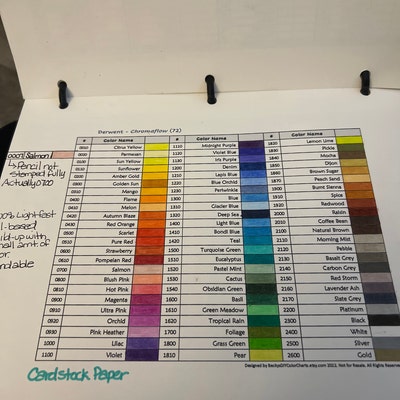 Derwent - Chromaflow (72)
# Color Name # Color Name # Color Name
0010 Citrus Yellow 1110 Midnight Purple 1820 Lemon Lime
Parmesan 1120 Violet Blue 1830 Pickle
0100 Sun Yellow 1130 Iris Purple 1840 Mocha
0110 Sunflower 1200 Denim 1850 Dijon
0200 Amber Gold 1210 Lapis Blue 1860 Brown Sugar
0300 Golden Sun 1220 Blue Orchid 1870 Peach Sand
0310 Mango 1230 Periwinkle 1900 Burnt Sienna
0400 Flame 1300 Blue 1910 Spice
0410 Melon 1310 Glacier Blue 1920 Redwood
0420 Autumn Blaze 1320 Deep Sea 2000 Raisin
0430 Red Orange 1400 Light Blue 2010 Coffee Bean
0500 Scarlet 1410 Bondi Blue 2100 Natural Brown
0510 Pure Red 1420 Teal 2110 Morning Mist
0600 Strawberry 1500 Turquoise Green 2120 Pebble
0610 Pompeian Red 1510 Eucalyptus 2130 Basalt Grey
0700 Salmon 1520 Pastel Mint 2140 Carbon Grey
0800 Blush Pink 1530 Cactus 2150 Red Storm
0810 Hot Pink 1540 Obsidian Green 2160 Lavender Ash
0900 Magenta 1600 Basil 2170 Slate Grey
0910 Ultra Pink 1610 Green Meadow 2200 Platinum
0920 Orchid 1620 Tropical Rain 2300 Black
0930 Pink Heather 1700 Foliage 2400 White
1000 Lilac 1800 Grass Green 2500 Silver
1100 Violet 1810 Pear 2600 Gold
Designed by BeckysDIYColorCharts.etsy.com 2023. Not for Resale. All Rights Reserved.
Salmon
↳ Pencil not
stamped fully
Actually 0700
00% Lightfast
l-based
ild-up with
mall amt of
or
endable
Cardstock Paper